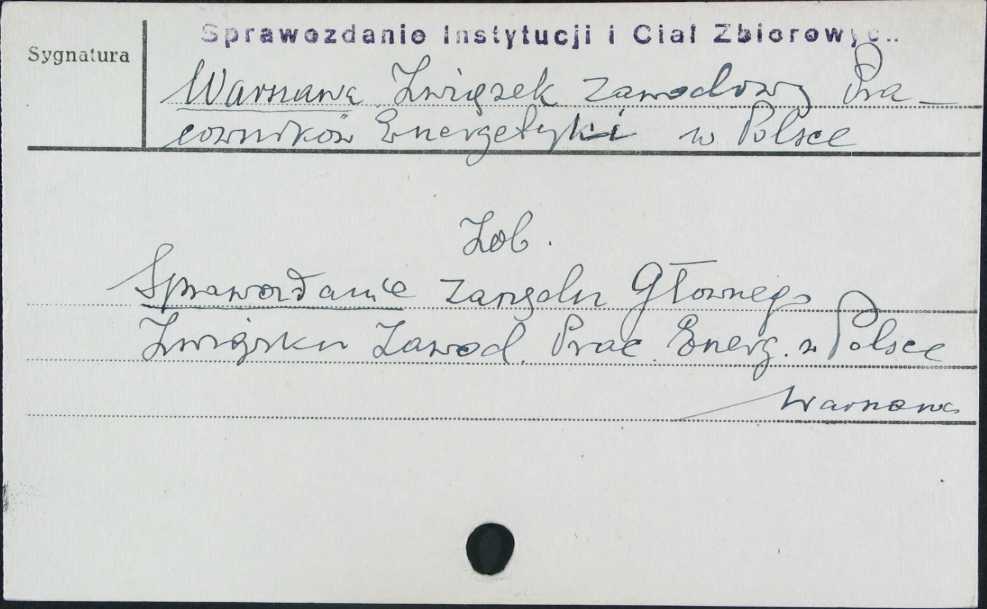 Sprawozdanie Instytucji i Ciał Zbiorowych
Sygnatura
Warszawa. Związek Zawodowy Pra-
cowników Energetyki w Polsce
Zob.
Sprawozdanie Zarządu Głównego
Związku Zawod. Prac. Energ. w Polsce
Warszawa